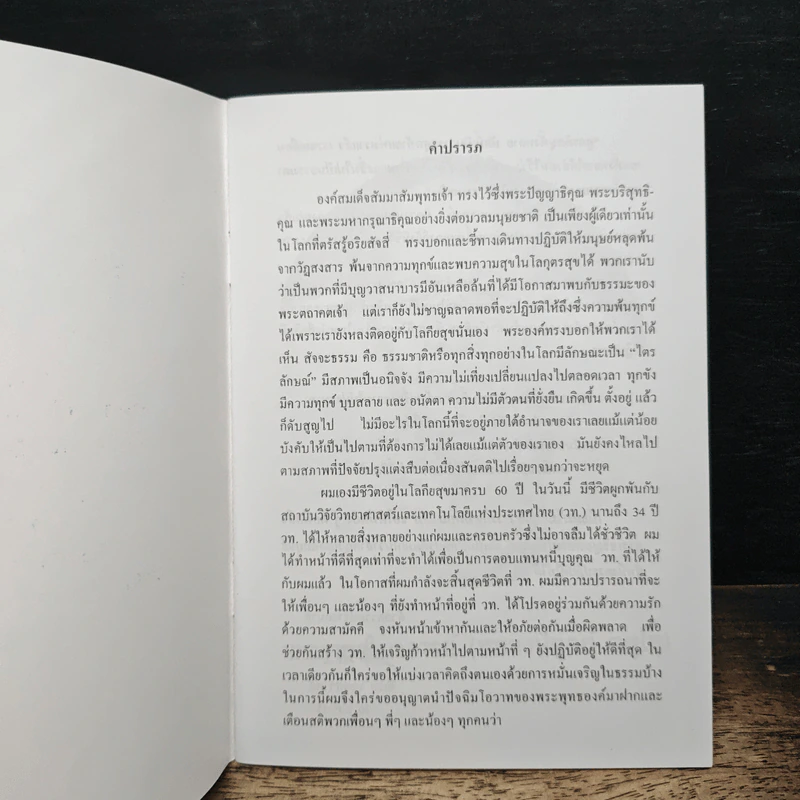 คำปรารภ
องค์สมเด็จสัมมาสัมพุทธเจ้า ทรงไว้ซึ่งพระปัญญาธิคุณ พระบริสุทธิ-
คุณ และพระมหากรุณาธิคุณอย่างยิ่งต่อมวลมนุษยชาติ เป็นเพียงผู้เดียวเท่านั้น
ในโลกที่ตรัสรู้อริยสัจสี่ ทรงบอกและชี้ทางเดินทางปฏิบัติให้มนุษย์หลุดพ้น
จากวัฏสงสาร พ้นจากความทุกข์และพบความสุขในโลกุตรสุขได้ พวกเรานับ
ว่าเป็นพวกที่มีบุญวาสนาบารมีอันเหลือล้นที่ได้มีโอกาสมาพบกับธรรมะของ
พระตถาคตเจ้า แต่เราก็ยังไม่ชาญฉลาดพอที่จะปฏิบัติให้ถึงซึ่งความพ้นทุกข์
ได้เพราะเรายังหลงติดอยู่กับโลกียสุขนั่นเอง พระองค์ทรงบอกให้พวกเราได้
เห็น สัจจะธรรม คือ ธรรมชาติหรือทุกสิ่งทุกอย่างในโลกมีลักษณะเป็น “ไตร
ลักษณ์” มีสภาพเป็นอนิจจัง มีความไม่เที่ยงเปลี่ยนแปลงไปตลอดเวลา ทุกขัง
มีความทุกข์ บุบสลาย และ อนัตตา ความไม่มีตัวตนที่ยั่งยืน เกิดขึ้น ตั้งอยู่ แล้ว
ก็ดับสูญไป ไม่มีอะไรในโลกนี้ที่จะอยู่ภายใต้อำนาจของเราเลยแม้แต่น้อย
บังคับให้เป็นไปตามที่ต้องการไม่ได้เลยแม้แต่ตัวของเราเอง มันยังคงไหลไป
ตามสภาพที่ปัจจัยปรุงแต่งสืบต่อเนื่องสันตติไปเรื่อยๆจนกว่าจะหยุด
ผมเองมีชีวิตอยู่ในโลกียสุขมาครบ 60 ปี ในวันนี้ มีชีวิตผูกพันกับ
สถาบันวิจัยวิทยาศาสตร์และเทคโนโลยีแห่งประเทศไทย (วท.) นานถึง 34 ปี
วท. ได้ให้หลายสิ่งหลายอย่างแก่ผมและครอบครัวซึ่งไม่อาจลืมได้ชั่วชีวิต ผม
ได้ทำหน้าที่ดีที่สุดเท่าที่จะทำได้เพื่อเป็นการตอบแทนหนี้บุญคุณ วท. ที่ได้ให้
กับผมแล้ว ในโอกาสที่ผมกำลังจะสิ้นสุดชีวิตที่ วท. ผมมีความปรารถนาที่จะ
ให้เพื่อนๆ และน้องๆ ที่ยังทำหน้าที่อยู่ที่ วท. ได้โปรดอยู่ร่วมกันด้วยความรัก
ด้วยความสามัคคี จงหันหน้าเข้าหากันและให้อภัยต่อกันเมื่อผิดพลาด เพื่อ
ช่วยกันสร้าง วท. ให้เจริญก้าวหน้าไปตามหน้าที่ ๆ ยังปฏิบัติอยู่ให้ดีที่สุด ใน
เวลาเดียวกันก็ใคร่ขอให้แบ่งเวลาคิดถึงตนเองด้วยการหมั่นเจริญในธรรมบ้าง
ในการนี้ผมจึงใคร่ขออนุญาตนำปัจฉิมโอวาทของพระพุทธองค์มาฝากและ
เตือนสติพวกเพื่อนๆ พี่ๆ และน้องๆ ทุกคนว่า